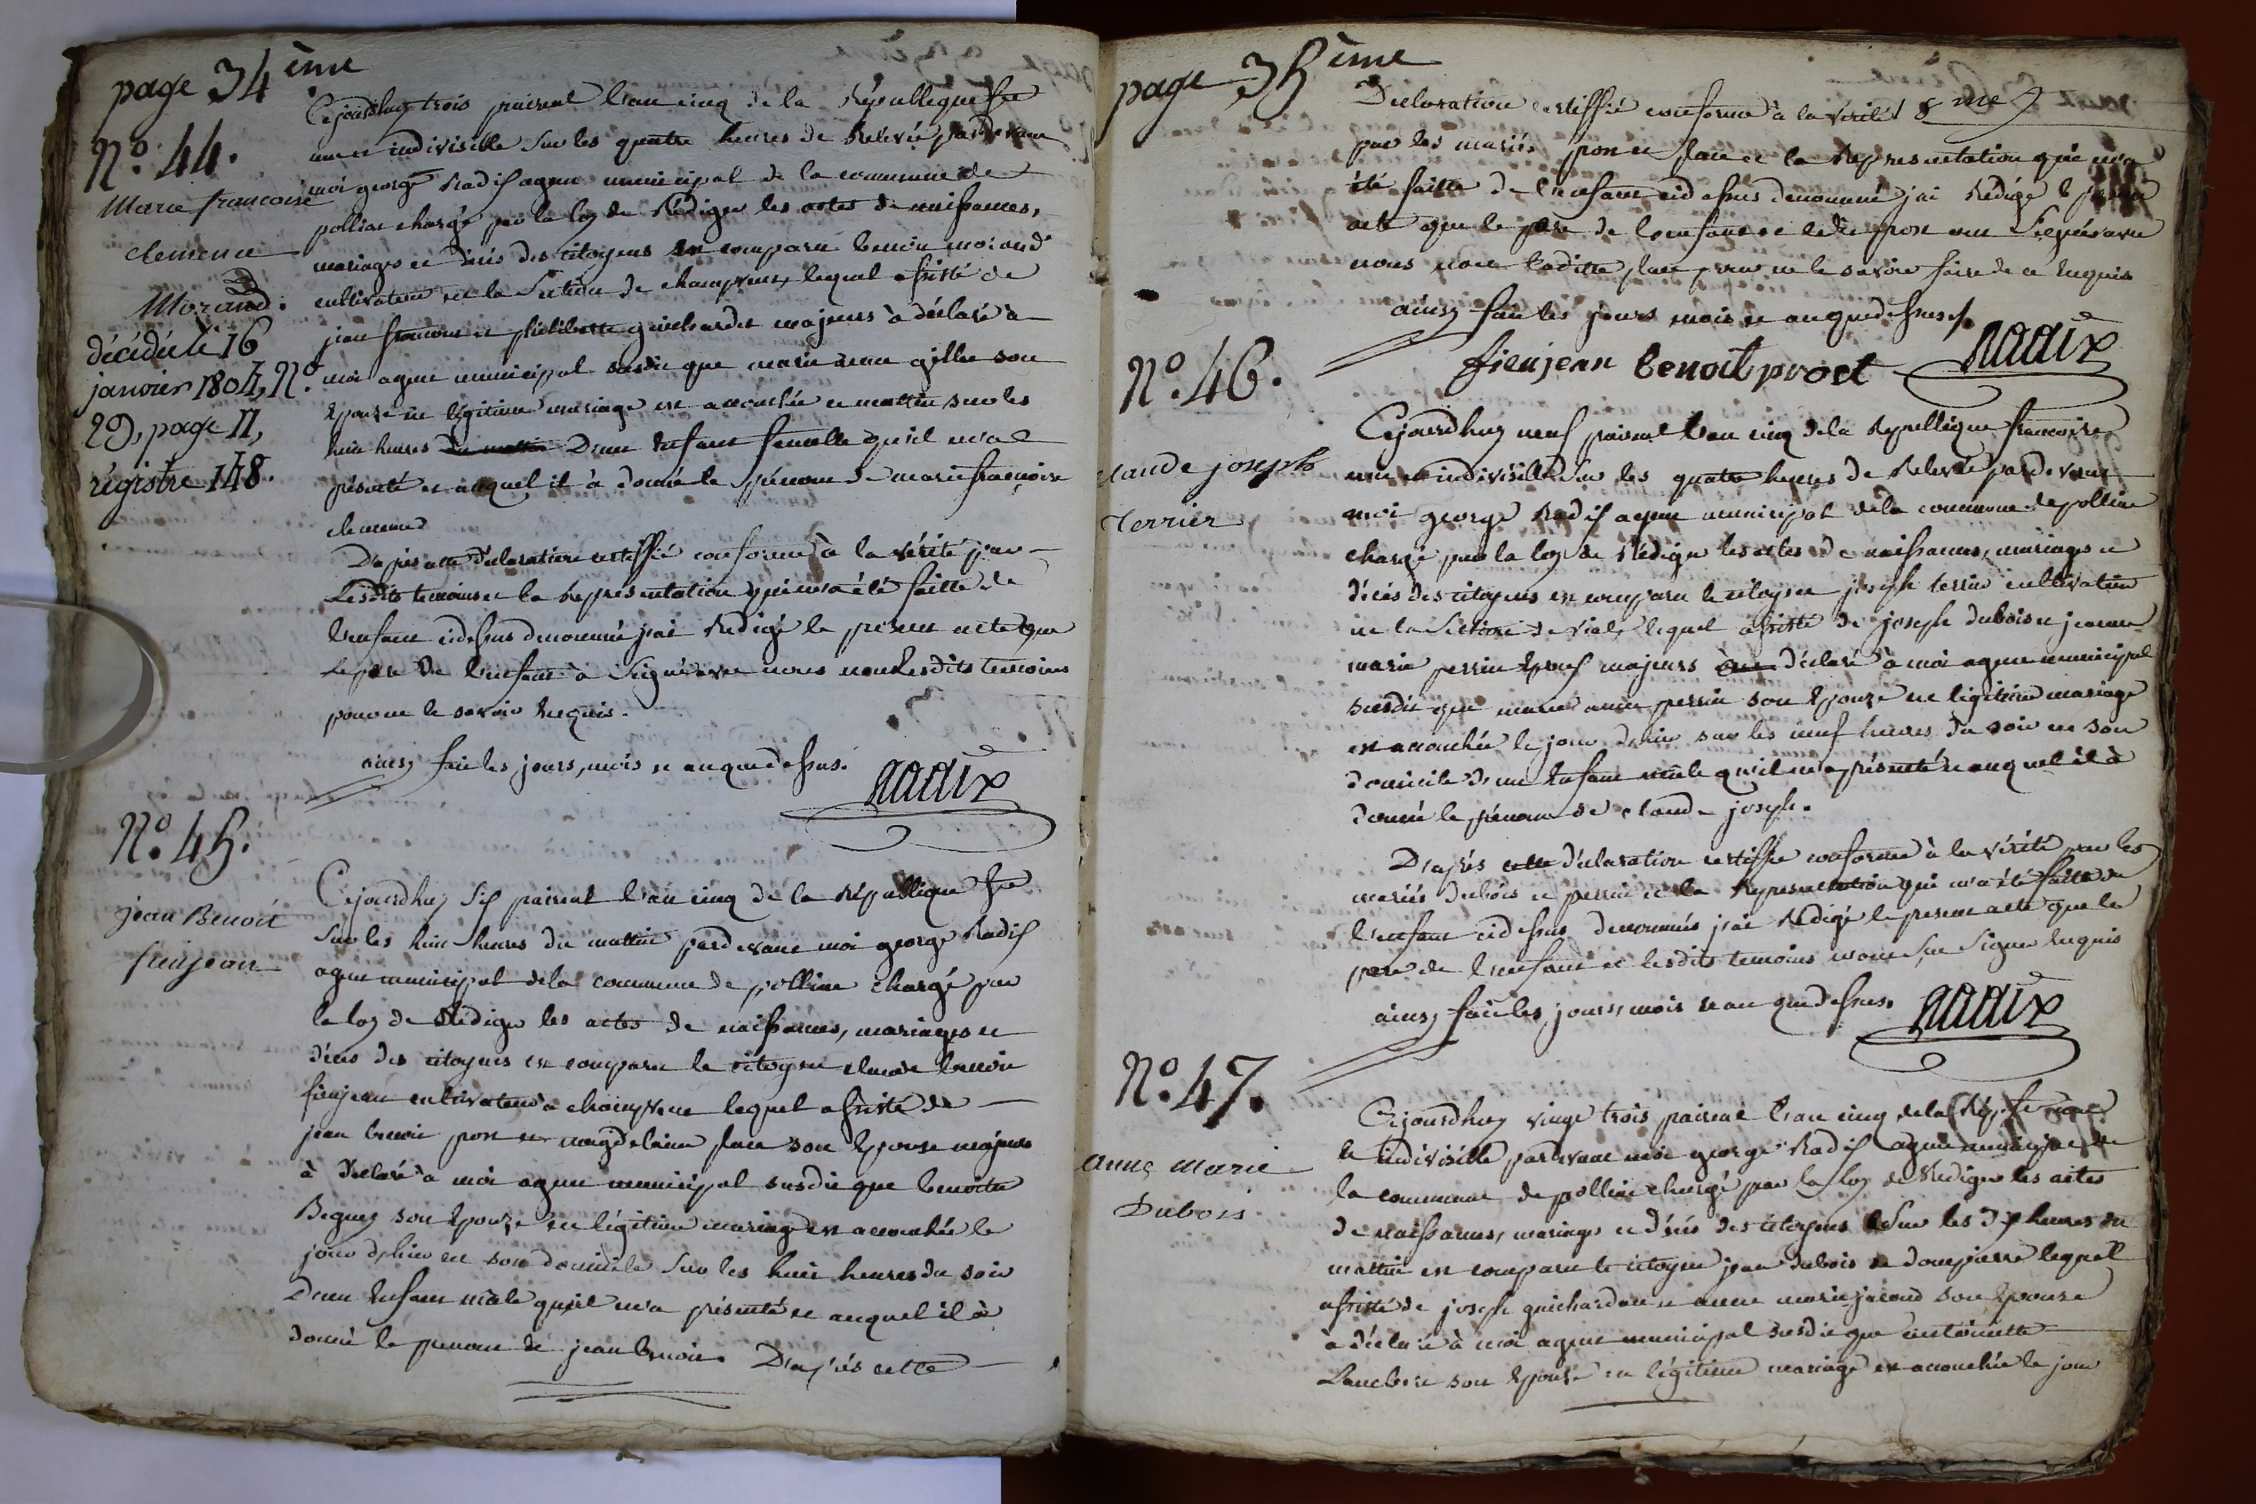 page 34 ème
N° 44.
Marie francoise
clemence
Morand.
décédée le 16
janvier 1804, N°
29, page 11,
régistre 148.
Cejourdhuy trois prairial l'an cinq de la Républlique fse
une et indivisible sur les quatre heures de Relevée pardevant
moi george Radix agent municipal de la commune de
polliat chargé par la loy de Rédiger les actes de naissances,
mariages et décès des citoyens est comparu benoit morand
cultivateur en la Section de champvent, lequel assisté de
jean francois et philiberte guichardet majeurs à déclaré à
moi agent municipal susdit que marie anne gillet son
épouse en légitime mariage est accouchée ce mattin sur les
huit heures du mattin D'un Enfant femelle qu'il m'a
présenté et auquel il à donné le prénom de marie francoise
clemence
D'après cette déclaration certiffié conforme à la vérité par
Lesdits temoins et la representation qui m'a été faitte de
l'enfant cidessus denommé j'ai Redigé le présent acte que
Le père de l'enfant à Signé avec nous non Lesdits temoins
pour ne le savoir Requis.
ainsy fait les jours, mois et an que dessus.
Radix
N° 45.
jean Benoit
fieujean
Cejourdhuy Six prairial l'an cinq de la République fse
Sur les huit heures du mattin pardevant moi george Radix
agent municipal de la commune de polliat chargé par
la loy de Rédiger les actes de naissances, mariages et
décès des citoyens est comparu le citoyen claude benoit
fieujean cultivateur à champvent lequel assisté de
jean benoit prost et magdelaine place son épouse majeurs
à déclaré à moi agent municipal susdit que benoite
Beguey son épouse en légitime mariage est accouchée le
jour d'hier en son domicile sur les huit heures du soir
D'un Enfant mâle qu'il m'a présenté et auquel il à
donné le prenom de jean benoit. D'après cette
page 35 ème
Déclaration certiffié conforme à la vérité
par les mariés prost et place et la Representation qui m'a
été faitte de l'enfant cidessus denommé j'ai Rédigé le présent
acte que le père de l'enfant et ledit prost ont Signé avec
nous non laditte place pour ne le savoir faire de ce Requis
ainsy fait les jours mois et an que dessus.
fieujean benoit prost Radix
N° 46.
claude joseph
Terrier
Cejourdhuy neuf prairial l'an cinq de la Republlique francoise
une et indivisible Sur les quatre heures de Relevée pardevant
moi george Radix agent municipal de la commune de polliat
chargé par la loy de Rédiger les actes de naissances, mariages et
décès des citoyens est comparu le citoyen joseph terrier cultivateur
en la Section de vial, lequel assisté de joseph dubois et jeanne
marie perrin époux majeurs déclaré à moi agent municipal
susdit que marie anne perrin son épouze en légitime mariage
est accouchée le jour d'hier sur les neuf heures du soir en son
domicile d'un Enfant mâle qu'il m'a présenté et auquel il à
donné le prénom de claude joseph.
D'après cette déclaration certiffié conforme à la vérité par les
mariés dubois et perrin et la Representation qui m'a été faitte de
l'enfant cidessus denommés j'ai Redigé le present acte que le
pere de l'enfant et lesdits temoins n'ont Su Signer Requis
ainsy fait les jours, mois et an que dessus.
Radix
N° 47.
anne marie
Dubois
Cejourdhuy vingt trois prairial l'an cinq de la Rép. fse une
et indivisible pardevant moi george Radix agent municipal de
la commune de polliat chargé par la loy de Rediger les actes
de naissances, mariages et décès des citoyens Sur les dix heures du
mattin est comparu le citoyen jean dubois de dompierre lequel
assisté de joseph guichardet et anne marie jacoud son épouse
à déclaré à moi agent municipal susdit que antoinette
son épouse en légitime mariage est accouchée le jour